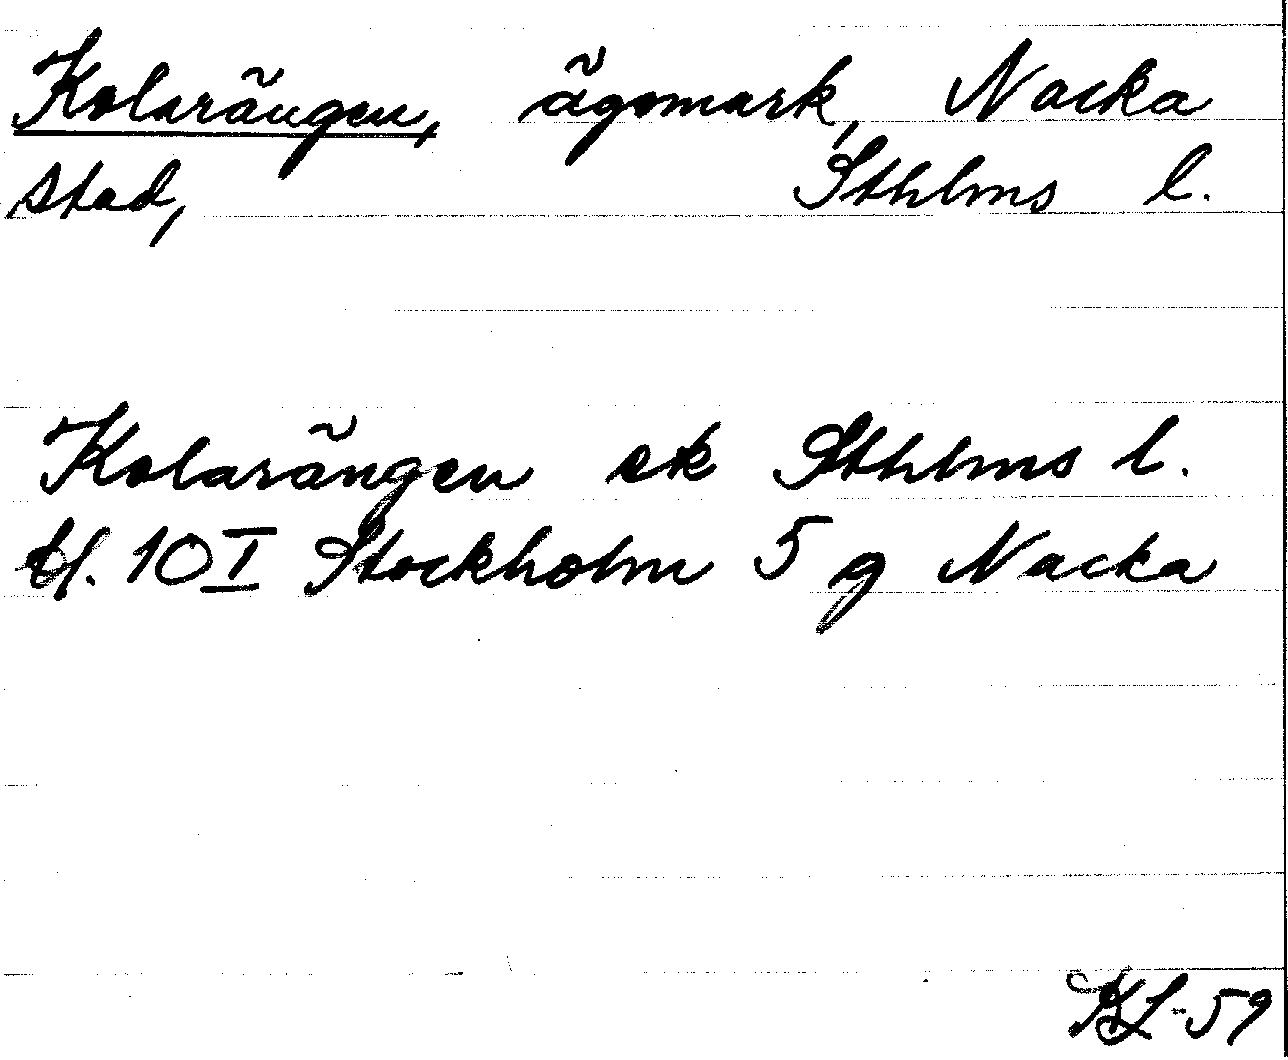 Kolarängen, ägomark, Nacka
stad, Sthlms l.
Kolarängen ek Sthlms l.
bl. 10 I Stockholm 5 g Nacka
KL-59